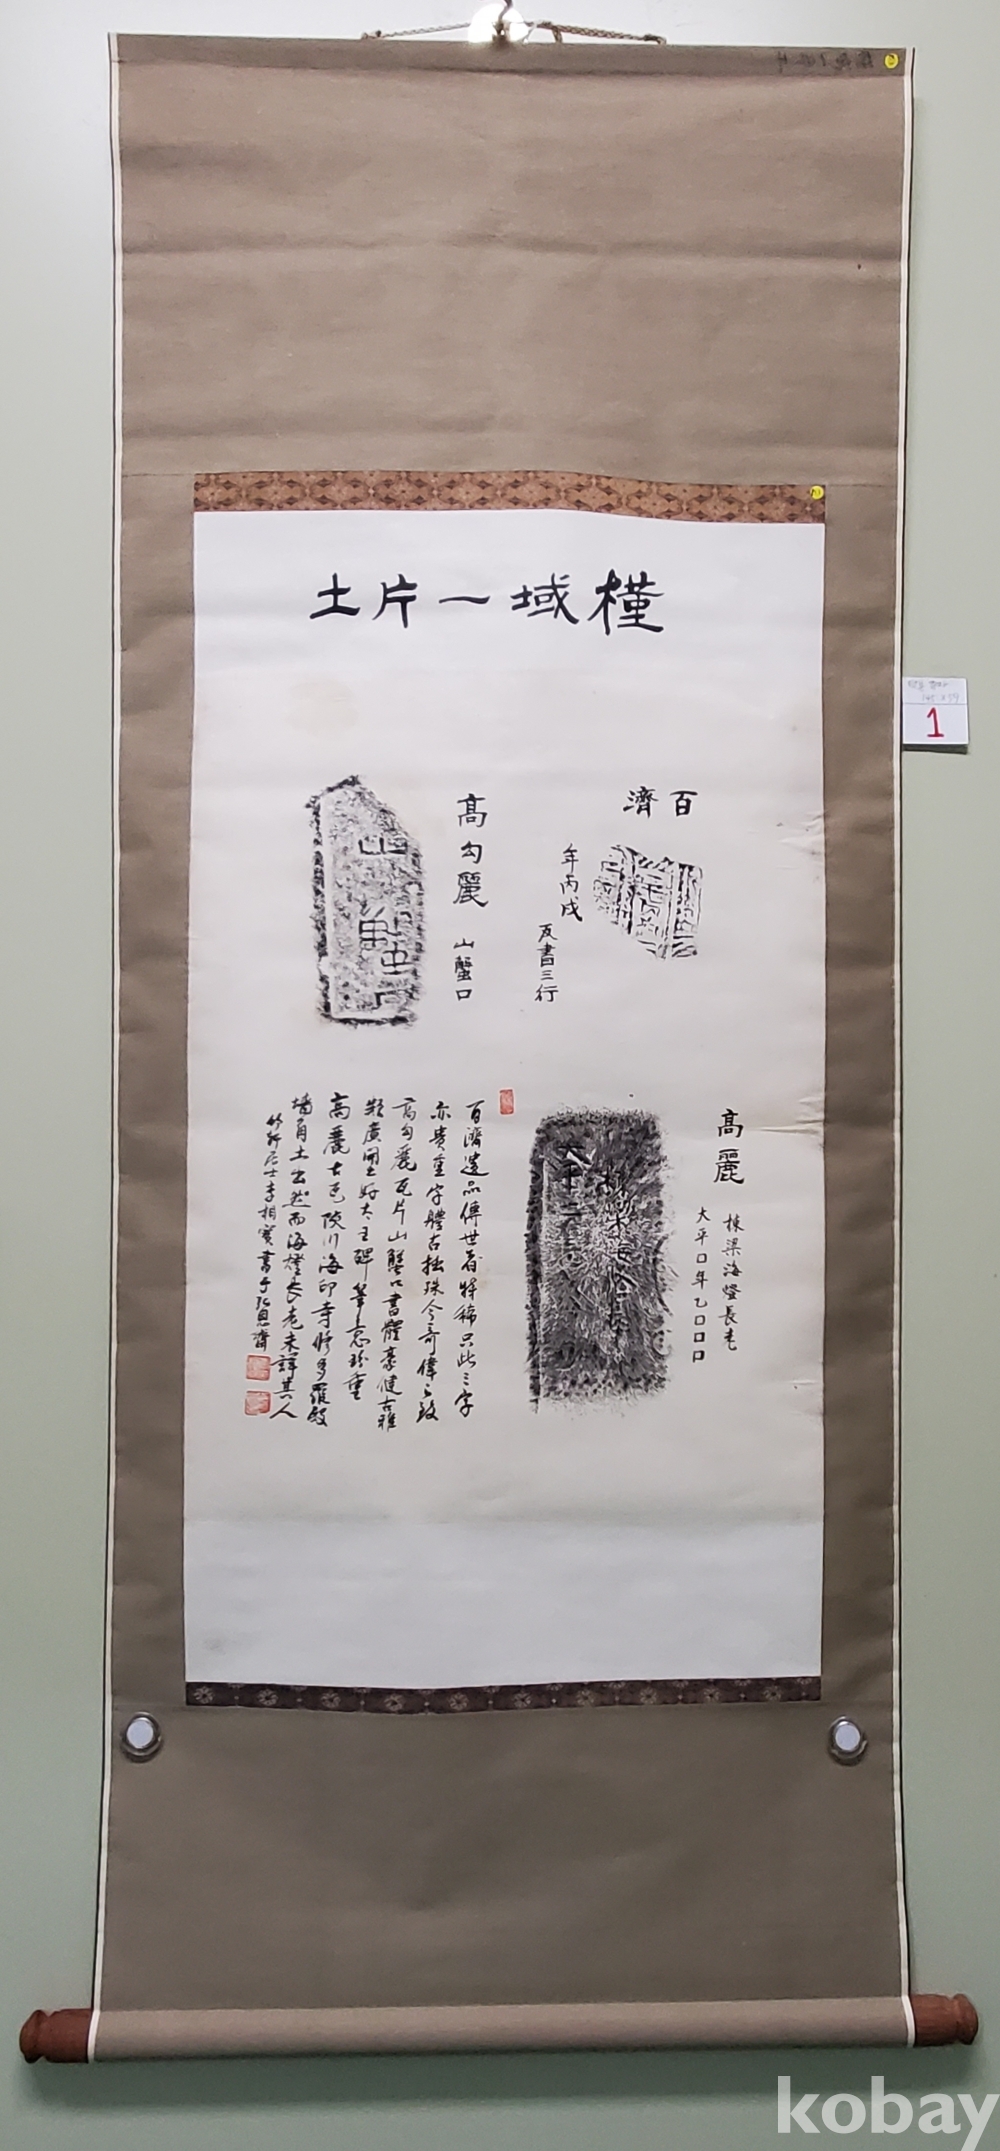 槿域一片土
百濟
年丙戌
反書三行
高勾麗
山蟹口
高麗
棟梁海燈長老
大平口年乙口口口
百濟遺品傳世者特稀只此三字
亦貴重字體古拙殊令奇偉之致
高勾麗瓦片山蟹口書體豪健古雅
類廣開土好太王碑筆意珍重
高麗古邑陜川海印寺修多羅殿
墻角土出然而海燈長老未詳其人
竹軒居士李相寶書于
1
kobay